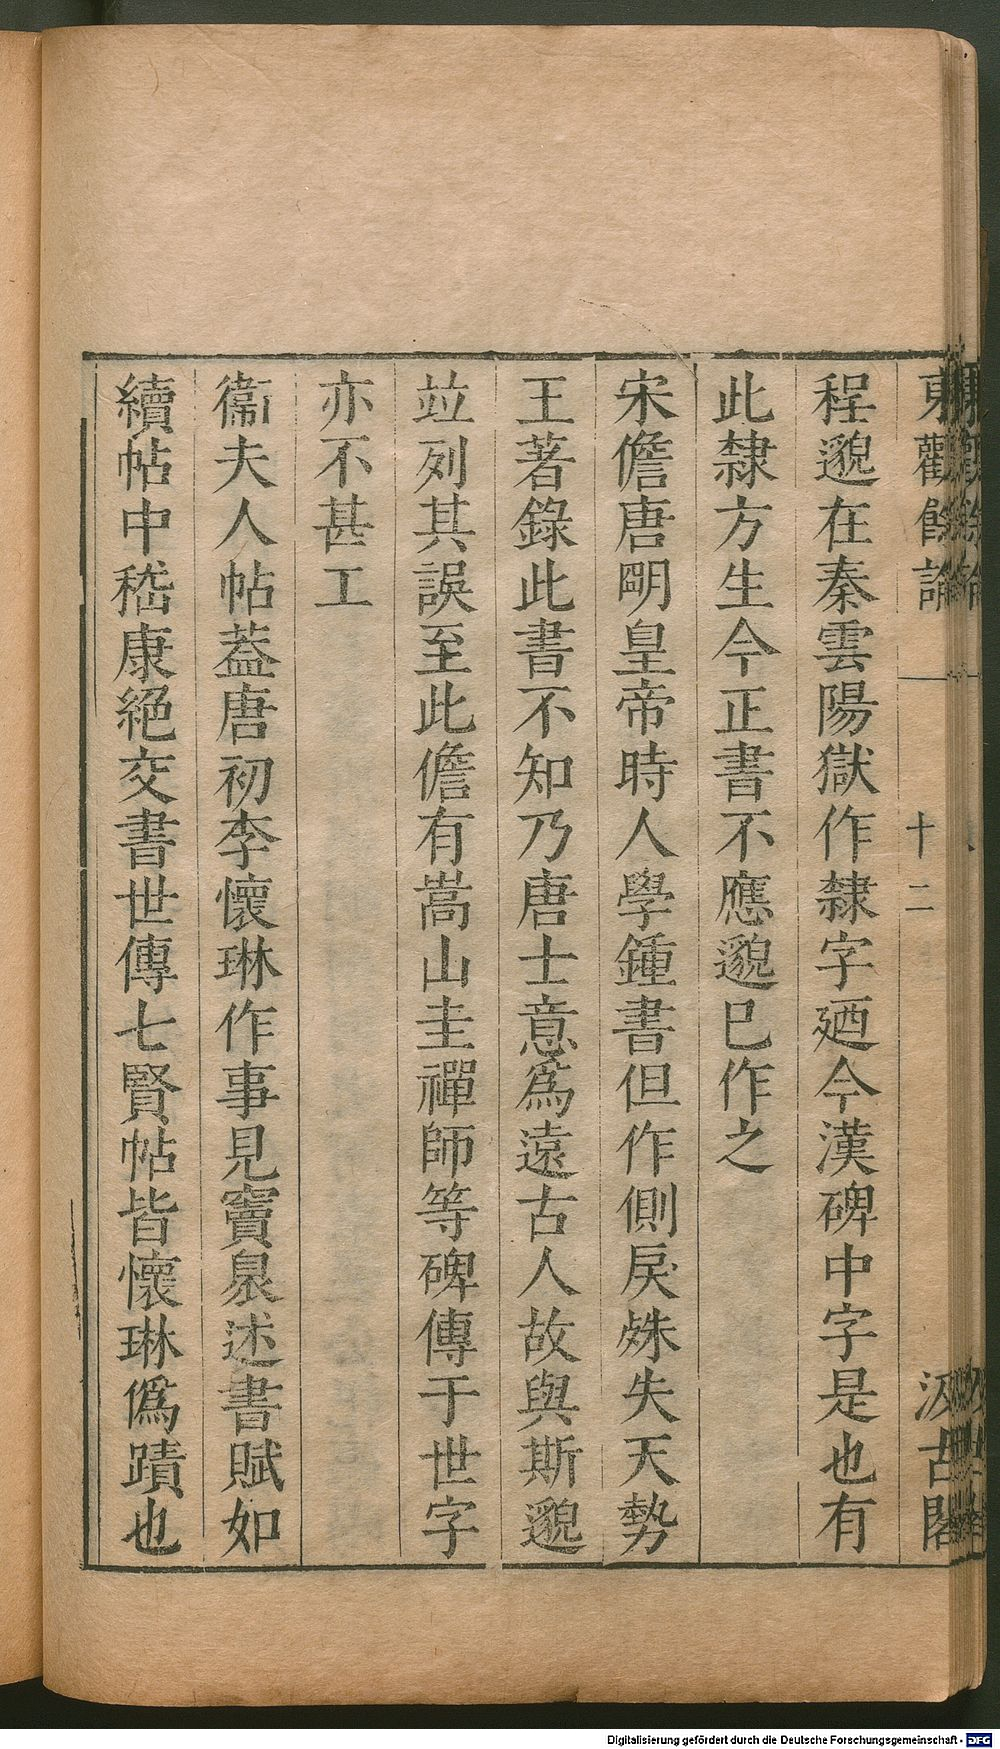 東觀餘論 十二 汲古閣
程邈在秦雲陽獄作隸字廼今漢碑中字是也有
此隸方生今正書不應邈已作之
宋儋唐明皇帝時人學鍾書但作側戾殊失天勢
王著錄此書不知乃唐士意爲遠古人故與斯邈
竝列其誤至此儋有嵩山圭禪師等碑傳于世字
亦不甚工
衞夫人帖葢唐初李懷琳作事見竇臮述書賦如
續帖中嵇康絕交書世傳七賢帖皆懷琳僞蹟也
Digitalisierung gefördert durch die Deutsche Forschungsgemeinschaft - DFG